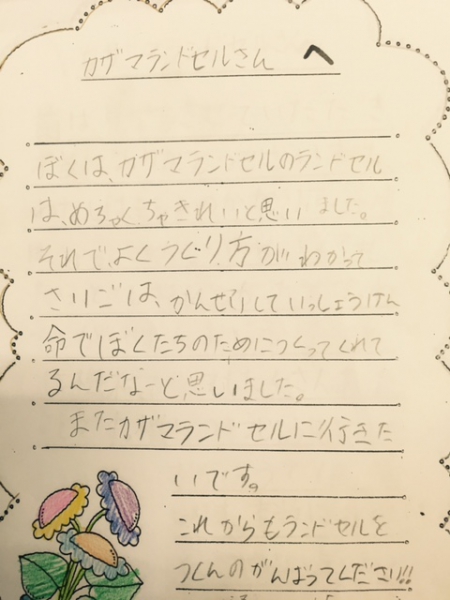 カザマランドセルさん へ
ぼくは、カザマランドセルのランドセル
は、めちゃくちゃきれいと思いました。
それで、よくつくり方がわかって
さいごは、かんせいしていっしょうけん
命でぼくたちのためにつくってくれて
るんだなーと思いました。
またカザマランドセルに行きた
いです。
これからもランドセルを
つくんのがんばってください!!